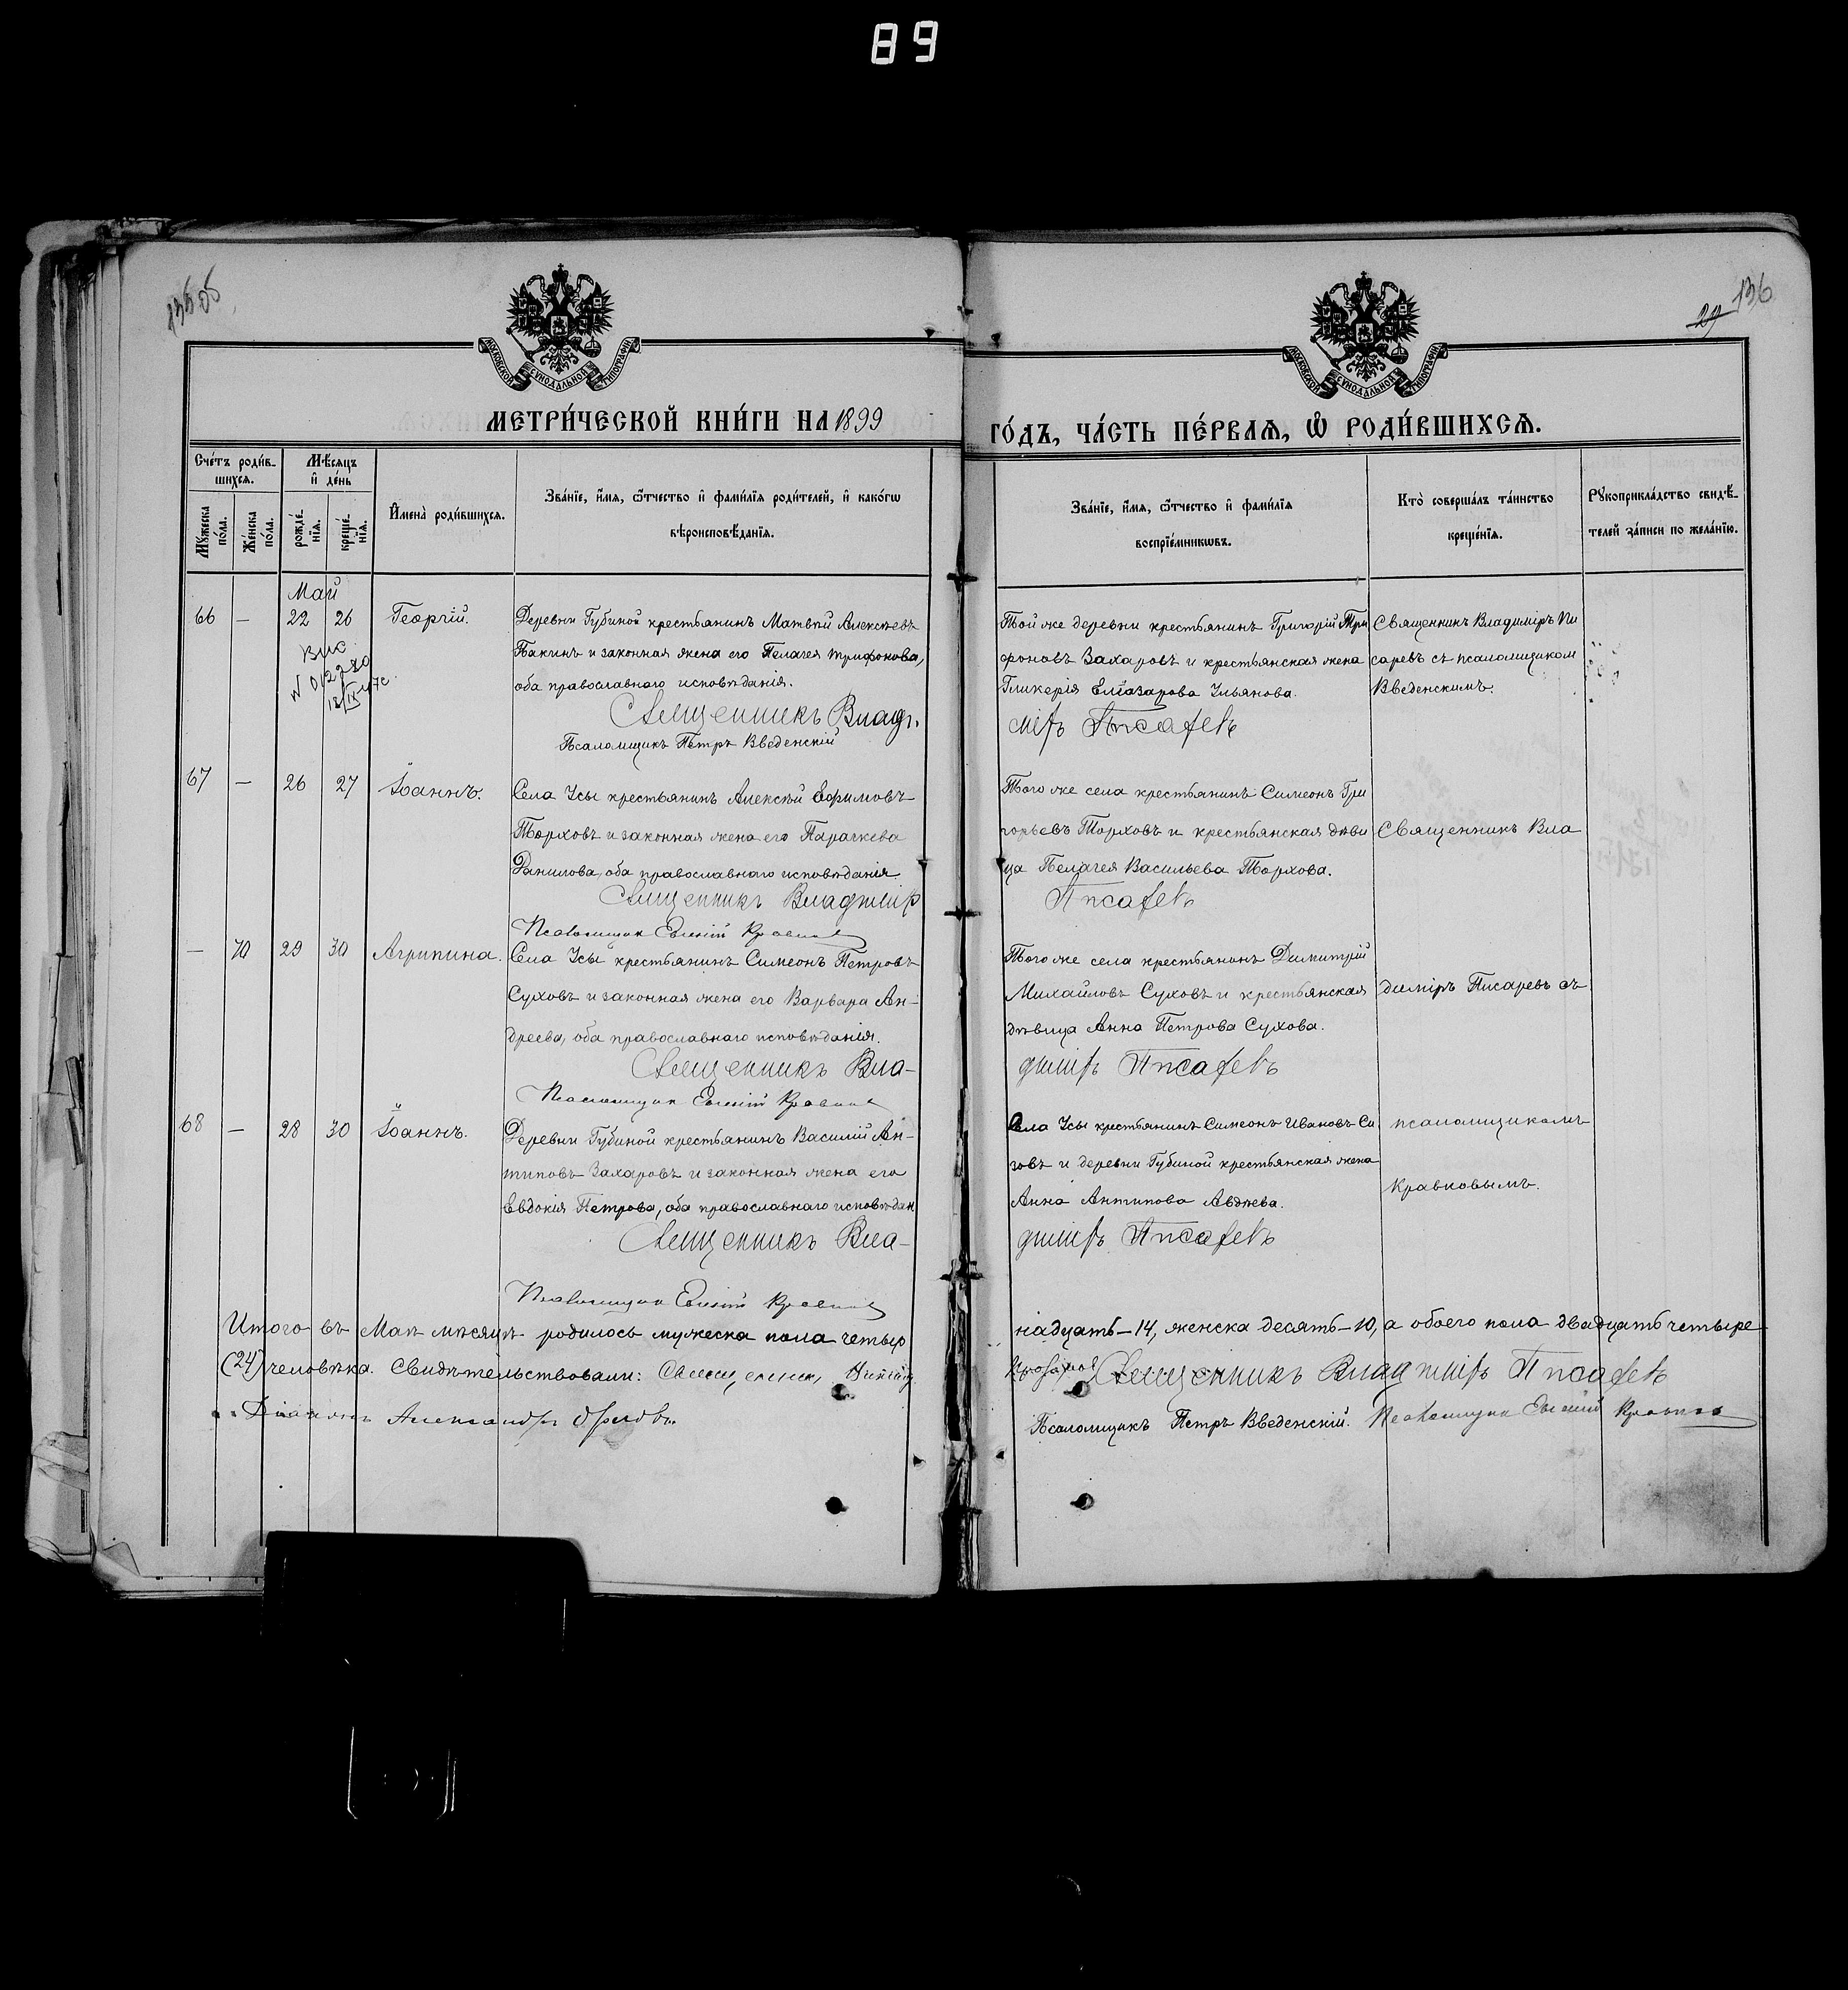 89
135об
136
29
МОСКОВСКОЙ СѴНОДАЛЬНОЙ ТИПОГРАФІИ
МОСКОВСКОЙ СѴНОДАЛЬНОЙ ТИПОГРАФІИ
МЕТРИ́ЧЕСКОЙ КНИ́ГИ НА 1899 ГО́ДЪ, ЧА́СТЬ ПЕ́РВАѦ, Ѡ҆ РОДИ́ВШИХСѦ.
Сче́тъ роди́в-
шихсѧ.
Мꙋ́жеска по́ла.
Же́нска по́ла.
Мѣ́сѧцъ
и҆ де́нь
рожде́-
нїѧ.
креще́-
нїѧ.
И҆мена̀ роди́вшихсѧ.
Зва́нїе, и҆́мѧ, ѻ҆́тчество и҆ фами́лїѧ роди́телей, и҆ како́гѡ
вѣроисповѣ́данїѧ.
Зва́нїе, и҆́мѧ, ѻ҆́тчество и҆ фами́лїѧ
воспрїе́мникѡвъ.
Кто̀ соверша́лъ та́инство
креще́нїѧ.
Рꙋкоприкла́дство свидѣ́-
телей за́писи по жела́нїю.
Май
66 — 22 26 Георгій.
Деревни Губиной крестьянинъ Матвѣй Алексѣевъ
Бакинъ и законная жена его Пелагея Трифонова,
оба православнаго исповѣданія.
Священникъ Влади-
Псаломщикъ Петръ Введенскій
Той же деревни крестьянинъ Григорій Три
фоновъ Захаровъ и крестьянская жена
Гликерія Елiазарова Ульянова.
міръ Писаревъ
Священникъ Владиміръ Пи
саревъ съ псаломщикомъ
Введенскимъ.
67 — 26 27 Іоаннъ.
Села Усы крестьянинъ Алексѣй Ефимовъ
Торховъ и законная жена его Параскева
Данилова, оба православнаго исповѣданія
Священникъ Владиміръ
Псаломщикъ Евгеній
Того же села крестьянинъ Симеонъ Гри
горьевъ Торховъ и крестьянская дѣви
ца Пелагея Васильева Торхова.
Писаревъ
Священникъ Вла
— 10 29 30 Агрипина.
Села Усы крестьянинъ Симеонъ Петровъ
Суховъ и законная жена его Варвара Ан-
дреева, оба православнаго исповѣданія.
Священникъ Вла-
Псаломщикъ Евгеній
Того же села крестьянинъ Димитрій
Михайловъ Суховъ и крестьянская
дѣвица Анна Петрова Сухова.
диміръ Писаревъ
диміръ Писаревъ съ
68 — 28 30 Іоаннъ.
Деревни Губиной крестьянинъ Василій Ан-
типовъ Захаровъ и законная жена его
Евдокія Петрова, оба православнаго исповѣдан
Священникъ Вла-
Псаломщикъ Евгеній
Села Усы крестьянинъ Симеонъ Ивановъ Си
зовъ и деревни Губиной крестьянская жена
Анна Антипова Авдѣева.
диміръ Писаревъ
псаломщикомъ
Кравковымъ.
Итого въ Маѣ мѣсяцѣ родилось мужеска пола четыр
надцать—14, женска десять—10, а обоего пола двадцать четыре
(24) человѣка. Свидѣтельствовали:
Священникъ Владиміръ Писаревъ
Діаконъ Александръ
Псаломщикъ Петръ Введенскій. Псаломщикъ Евгеній